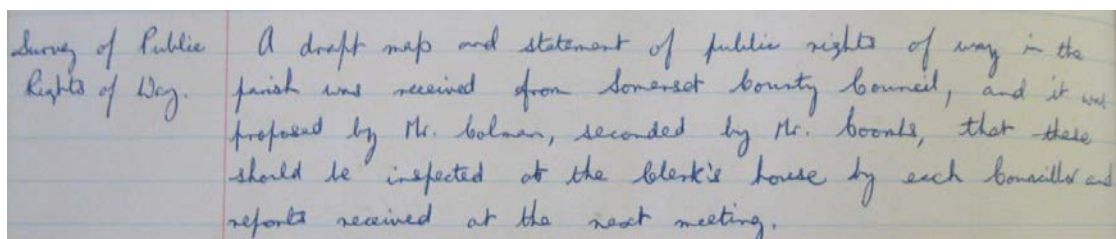 Survey of Public
Rights of Way.
A draft map and statement of public rights of way in the
parish was received from Somerset County Council, and it was
proposed by Mr. Colman, seconded by Mr. Coombs, that these
should be inspected at the Clerk's house by each Councillor and
reports received at the next meeting.